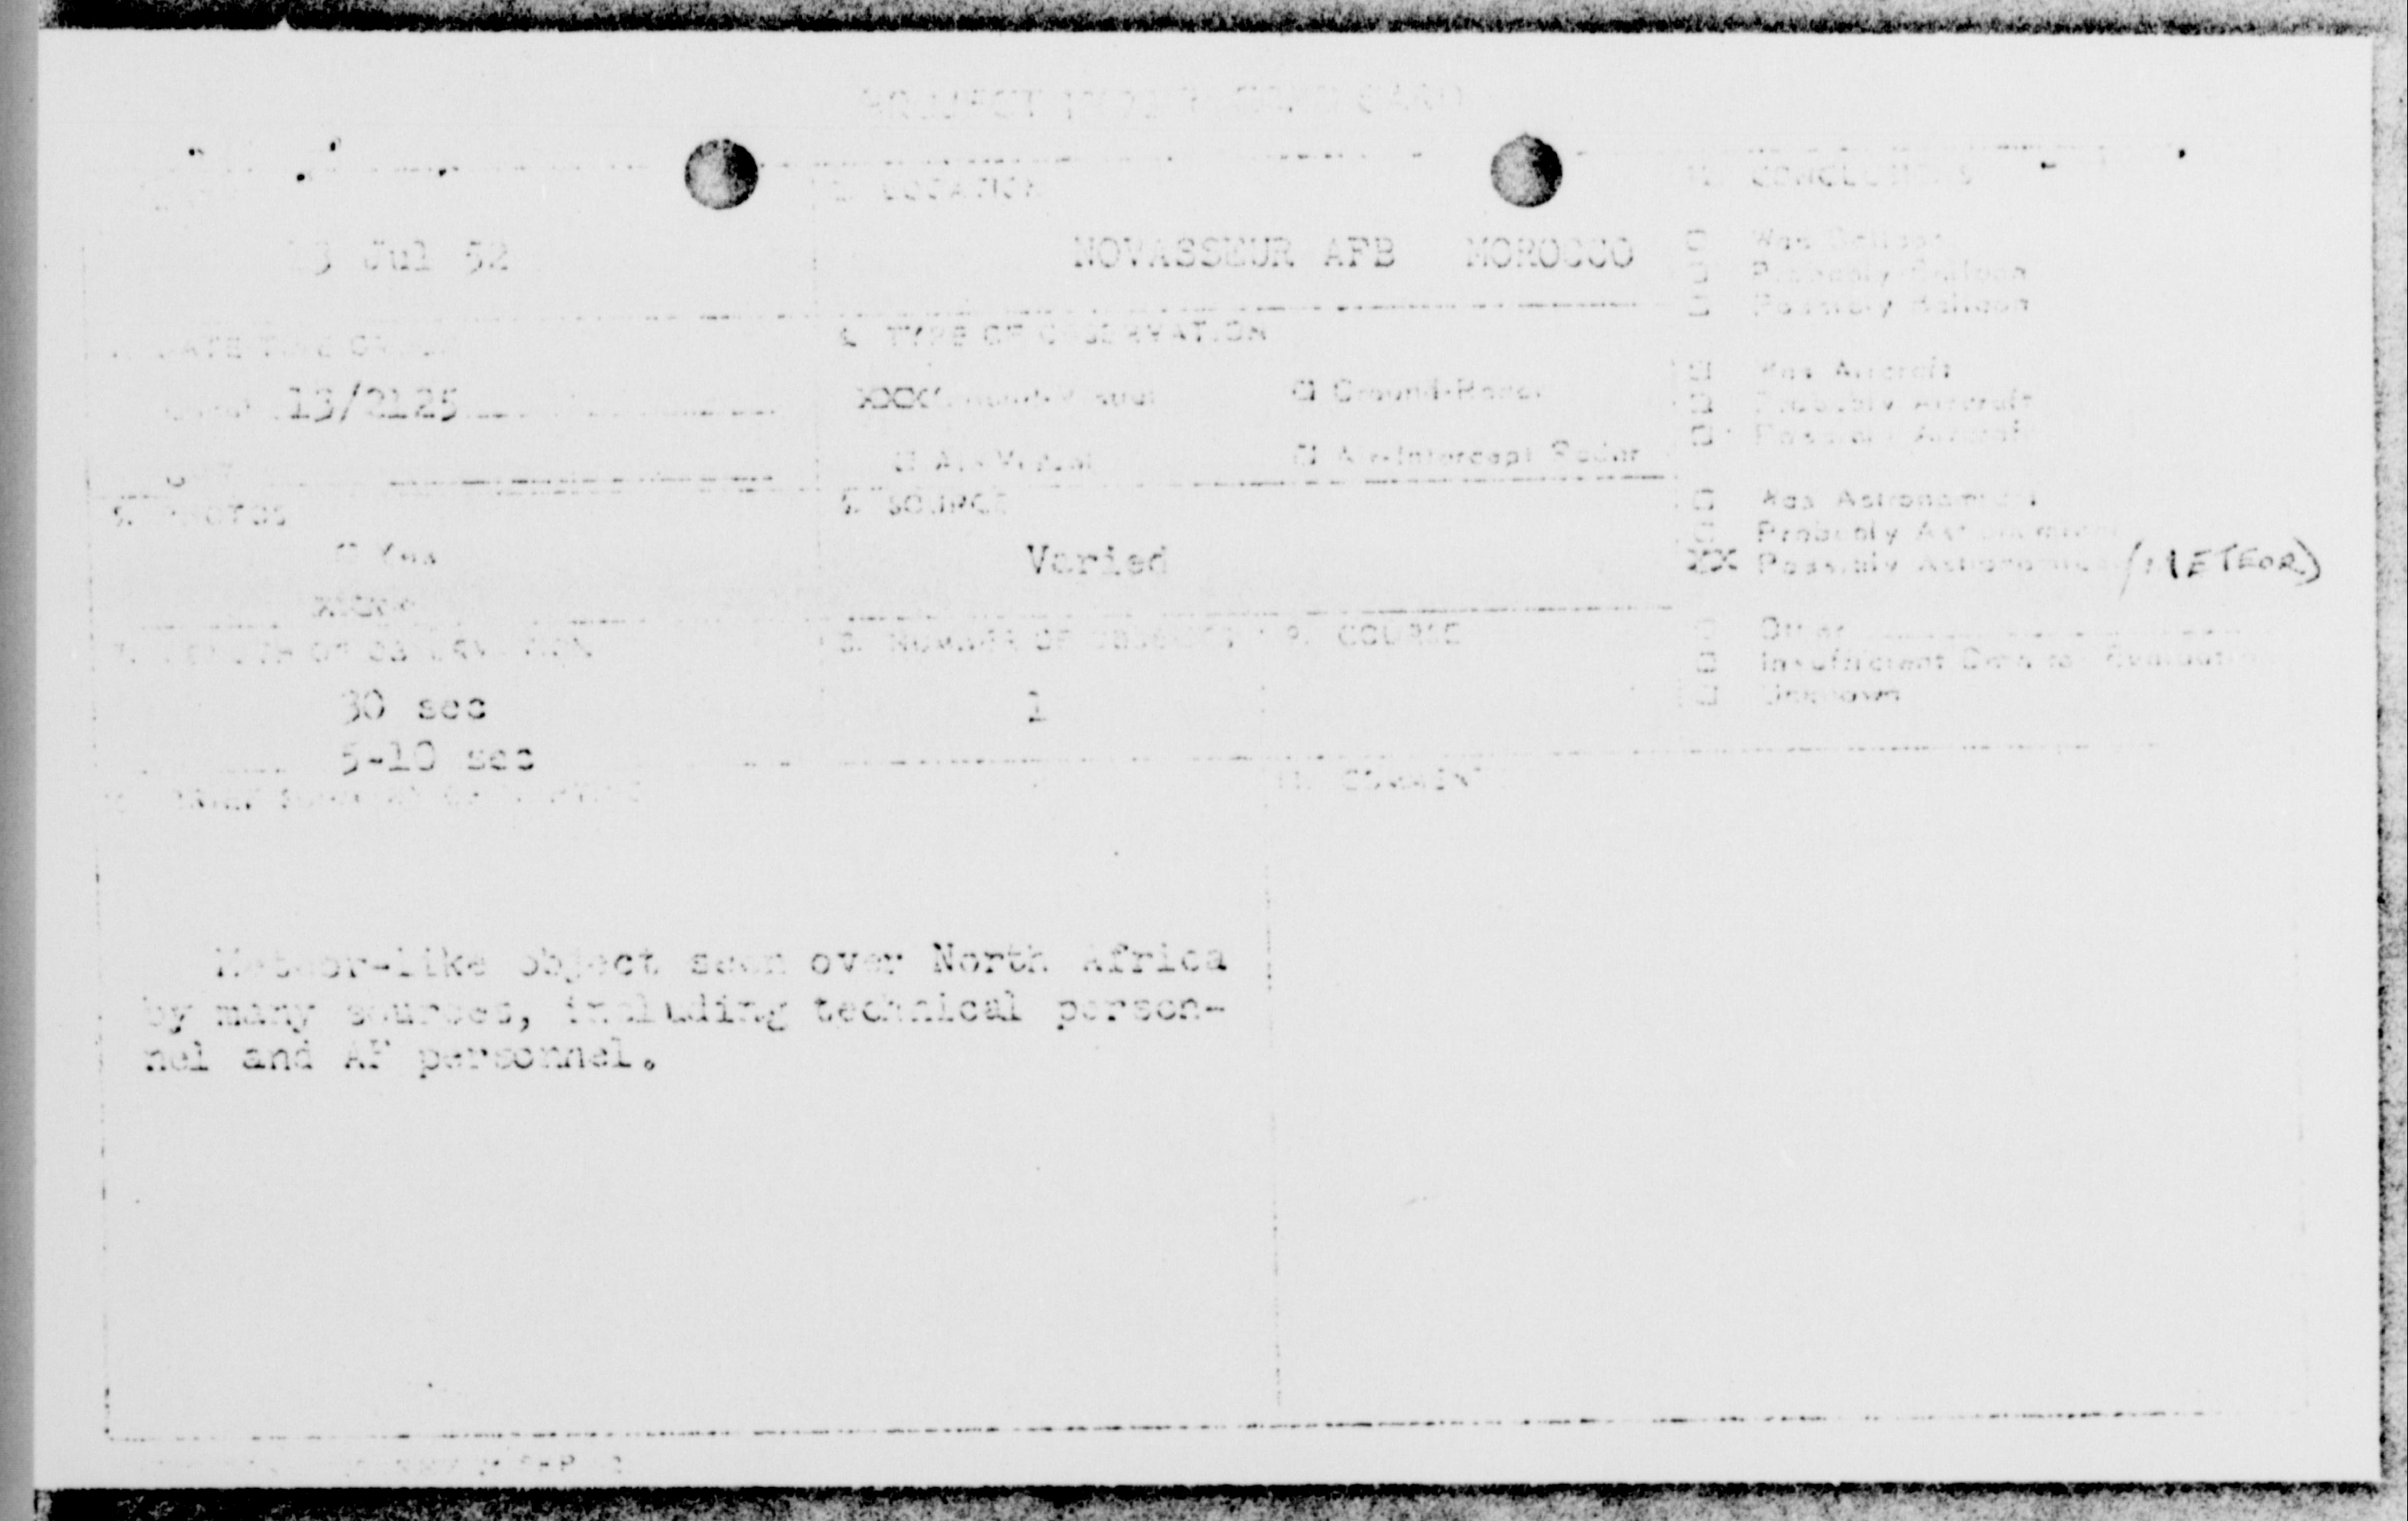 2. LOCATION
CONCLUSIONS
13 Jul 52
NOVASSEUR AFB MOROCCO
□ Was Balloon
□ Probably Balloon
□ Possibly Balloon
4. TYPE OF OBSERVATION
13/2125
XXX Ground-Visual □ Ground-Radar
□ Air-Visual □ Air-Intercept Radar
□ Was Aircraft
□ Probably Aircraft
□ Possibly Aircraft
5. PHOTOS
□ Yes
6. SOURCE
Varied
□ Was Astronomical
□ Probably Astronomical
XX Possibly Astronomical (METEOR)
7. LENGTH OF OBSERVATION
8. NUMBER OF OBJECTS 9. COURSE
□ Other
□ Insufficient Data for Evaluation
□ Unknown
30 sec
5-10 sec
1
11. COMMENTS
Meteor-like object seen over North Africa
by many sources, including technical person-
nel and AF personnel.